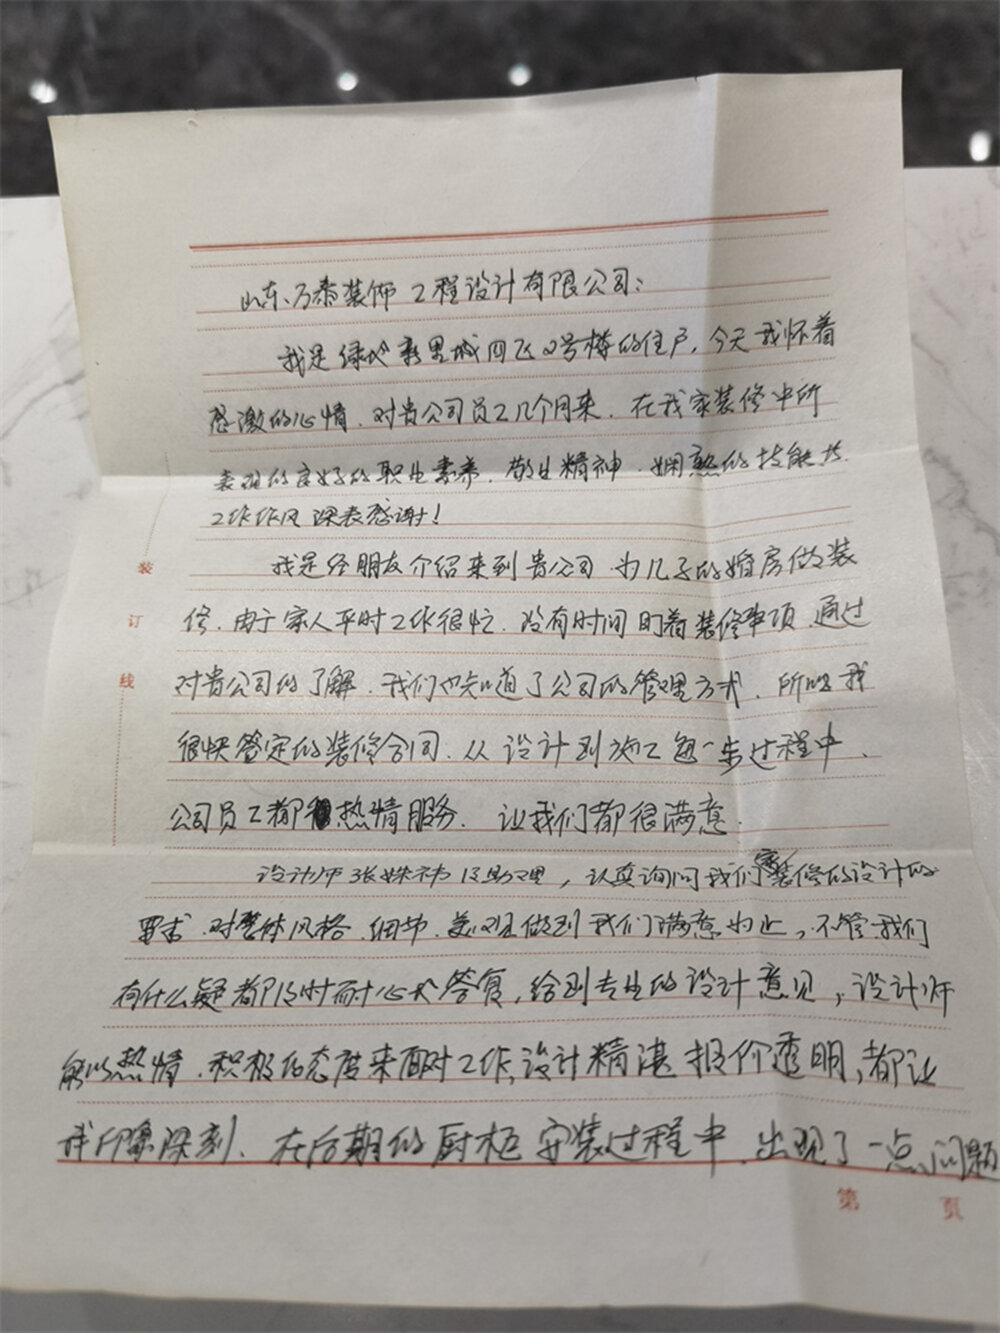 山东万泰装饰工程设计有限公司：
我是绿地新里城四飞2号楼的住户，今天我怀着
感激的心情，对贵公司员工几个月来，在我家装修中所
表现的良好的职业素养，敬业精神，娴熟的技能
工作作风深表感谢！
我是经朋友介绍来到贵公司为儿子的婚房做装
修，由于家人平时工作很忙，没有时间盯着装修事项，通过
对贵公司的了解，我们也知道了公司的管理方式，所以我
很快签定的装修合同，从设计到施工每一步过程中，
公司员工都热情服务，让我们都很满意。
设计师张姝祎助理，认真询问我们家装修的设计的
要求，对整体风格、细节、美观做到我们满意为止，不管我们
有什么疑都及时耐心式答复，给到专业的设计意见，设计师
能以热情、积极的态度来面对工作，设计精湛报价透明，都让
我印象深刻，在后期的厨柜安装过程中，出现了一点问题
装
订
线
第 页